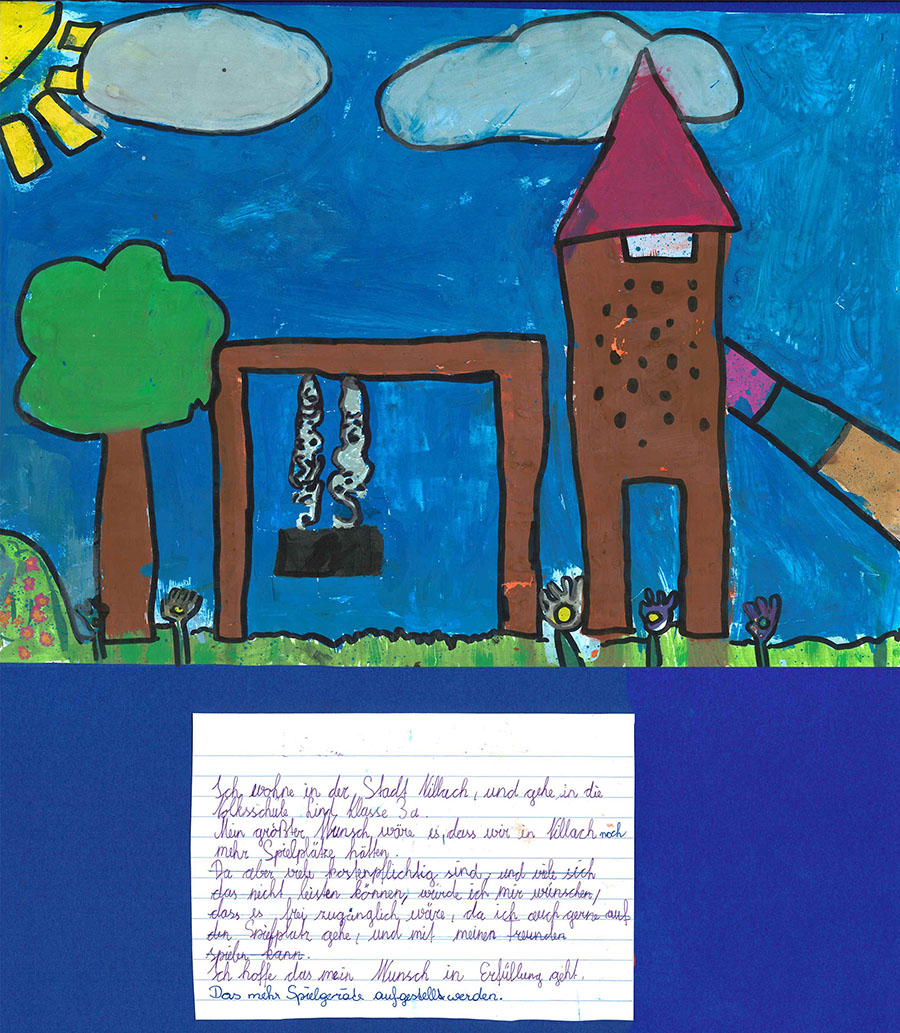 Ich wohne in der Stadt Villach, und gehe in die
Volksschule Lind Klasse 3a.
Mein größter Wunsch wäre es, dass wir in Villach noch
mehr Spielplätze hätten.
Da aber viele kostenpflichtig sind, und viele sich
das nicht leisten können, würde ich mir wünschen,
dass es frei zugänglich wäre, da ich auch gerne auf
den Spielplatz gehe, und mit meinen freunden
spielen kann.
Ich hoffe das mein Wunsch in Erfüllung geht.
Das mehr Spielgeräte aufgestellt werden.